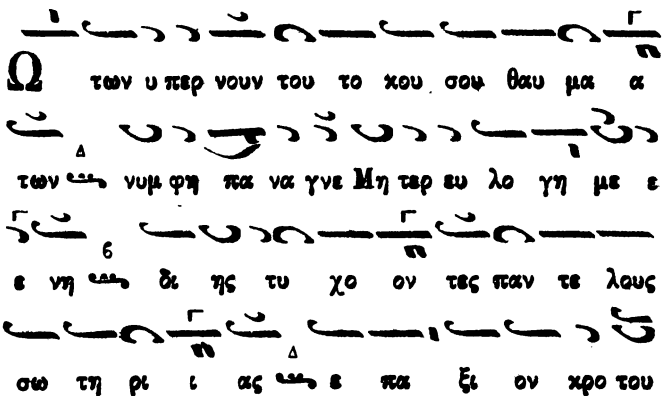 Ω των υ περ νουν του το κου σου θαυ μα α
των νυμ φη πα να γνε Μη τερ ευ λο γη με ε
ε νη δι ης τυ χο ον τες παν τε λους
σω τη ρι ι ας ε πα ξι ον κρο του